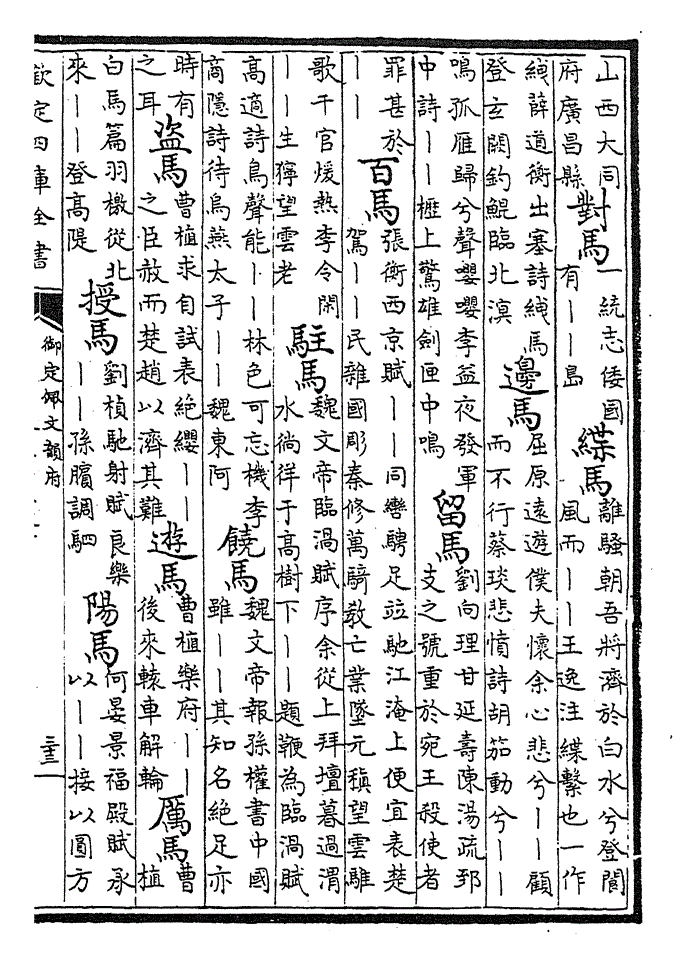 山西大同
府廣昌縣
對馬
一統志倭國
有丨丨島
緤馬
離騷朝吾將濟於白水兮登閬
風而丨丨王逸注緤繫也一作
絏薛道衡出塞詩絏馬
登玄闕釣鯤臨北溟
邊馬
屈原遠遊僕夫懷余心悲兮丨丨顧
而不行蔡琰悲憤詩胡笳動兮丨丨
鳴孤雁歸兮聲嚶嚶李益夜發軍
中詩丨丨櫪上驚雄劍匣中鳴
留馬
劉向理甘延壽陳湯疏郅
支之號重於宛王殺使者
罪甚於
丨丨
百馬
張衡西京賦丨丨同轡騁足竝馳江淹上便宜表楚
駕丨丨民雜國彫秦修萬騎教亡業墜元稹望雲騅
歌千官煖熱李令閑
丨丨生獰望雲老
駐馬
魏文帝臨渦賦序余從上拜壇暮過渭
水徜徉于高樹下丨丨題鞭為臨渦賦
高適詩鳥聲能丨丨林色可忘機李
商隱詩待烏燕太子丨丨魏東阿
饒馬
魏文帝報孫權書中國
雖丨丨其知名絕足亦
時有
之耳
盜馬
曹植求自試表絕纓丨丨
之臣赦而楚趙以濟其難
遊馬
曹植樂府丨丨
後來轅車解輪
厲馬
曹
植
白馬篇羽檄從北
來丨丨登高隄
授馬
劉楨馳射賦良樂
丨丨孫臏調駟
陽馬
何晏景福殿賦承
以丨丨接以圓方
欽定四庫全書
御定佩文韻府